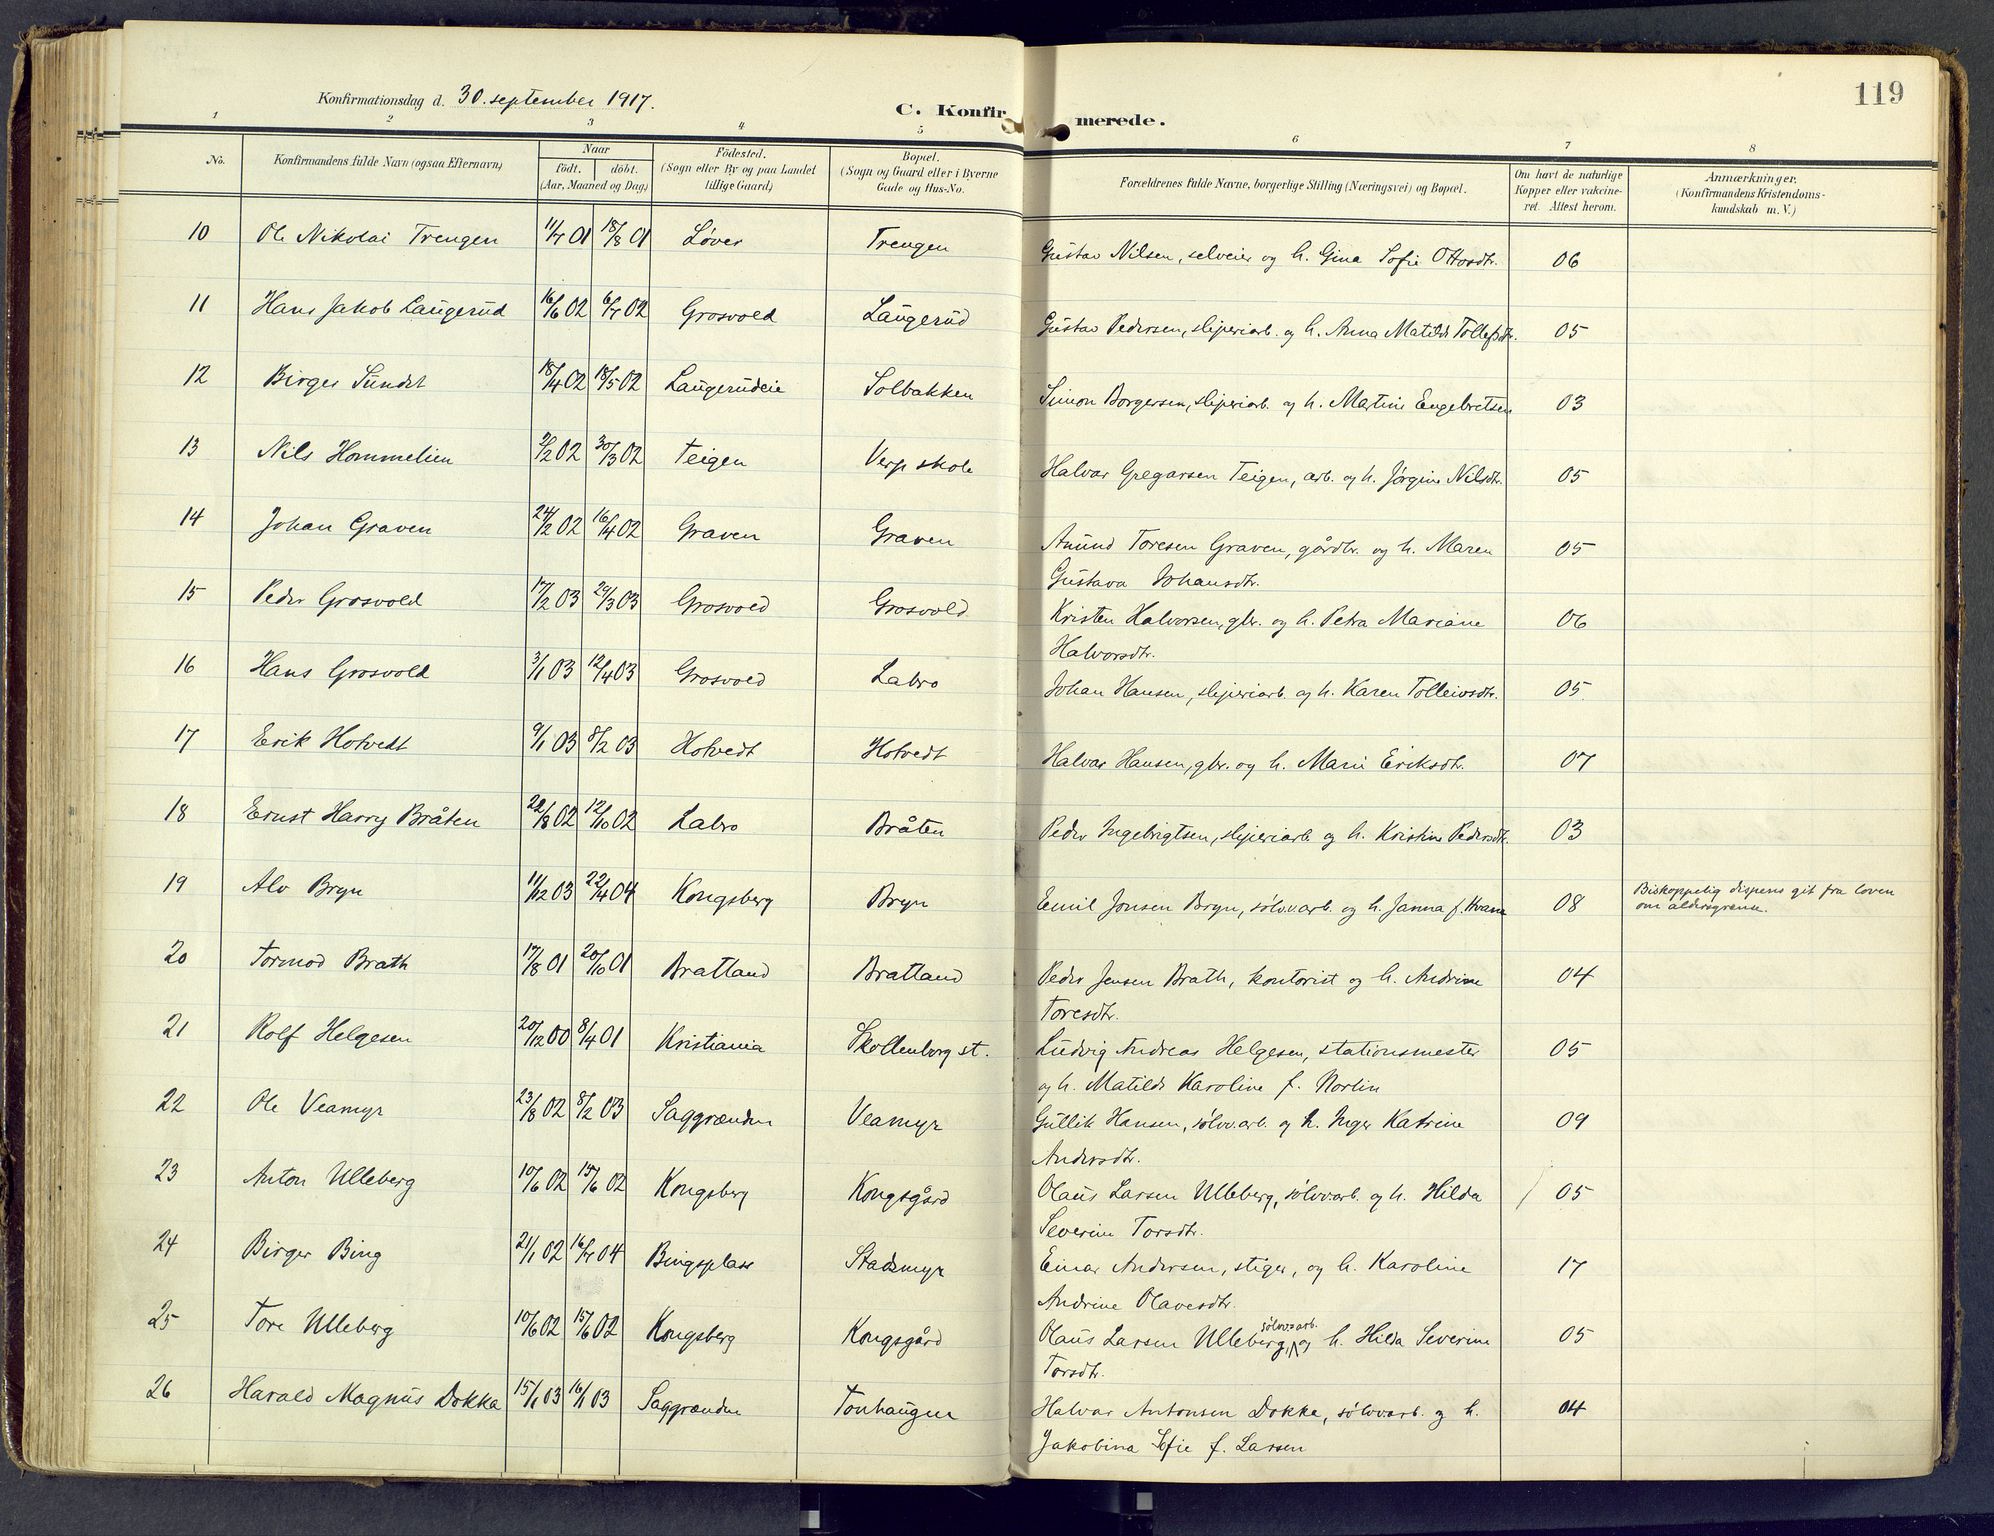 119
Konfirmationsdag d. 30. september 1917.
C. Konfirmerede.
1 2 3 4 5 6 7 8
No. Konfirmandens fulde Navn (ogsaa Efternavn) Naar födt. döbt. (Aar, Maaned og Dag) Födested. (Sogn eller By og paa Landet tillige Gaard) Bopæl. (Sogn og Gaard eller i Byerne Gade og Hus-No. Forældrenes fulde Navne, borgerlige Stilling (Næringsvei) og Bopæl. Om havt de naturlige Kopper eller vakcineret. Attest herom. Anmærkninger. (Konfirmandens Kristendomskundskab m. V.)
10 Ole Nikolai Trengen 11/7 01 18/8 01 Løver Trengen Gustav Nilsen, selveier og h. Gina Sofie Ottosdtr. 06
11 Hans Jakob Laugerud 16/6 02 6/7 02 Grosvold Laugerud Gustav Pedersen, sliperiarb. og h. Anna Matilde Tollefsdtr. 05
12 Birger Sundet 18/4 02 18/5 02 Laugerudeie Solbakken Simon Borgersen, sliperiarb. og h. Martine Engebretsen 03
13 Nils Hommelien 2/2 02 30/3 02 Teigen Verp skole Halvar Gregarsen Teigen, arb. og h. Jørgine Nilsdtr. 05
14 Johan Graven 24/2 02 16/4 02 Graven Graven Amund Toresen Graven, gårdbr. og h. Maren 05
Gustava Johansdtr.
15 Peder Grosvold 17/2 03 29/3 03 Grosvold Grosvold Kristen Halvorsen, gbr. og h. Petra Mariane 06
Halvorsdtr.
16 Hans Grosvold 3/1 03 12/4 03 Grosvold Labro Johan Hansen, sliperiarb. og h. Karen Tolleivsdtr. 05
17 Erik Hotvedt 9/1 03 8/2 03 Hotvedt Hotvedt Halvar Hansen, gbr. og h. Marie Eriksdtr. 07
18 Ernst Harry Bråten 22/8 02 12/10 02 Labro Bråten Peder Ingebrigtsen, sliperiarb. og h. Kristine Pedersdtr. 03
19 Alv Bryn 11/12 03 22/4 04 Kongsberg Bryn Emil Jonsen Bryn, sølvarb. og h. Janna f. Hvam 08 Biskoppelig dispens git fra loven
om aldersgrense.
20 Tormod Brath 17/8 01 20/10 01 Bratland Bratland Peder Jensen Brath, kontorist og h. Andrine 04
Toresdtr.
21 Rolf Helgesen 20/12 00 8/4 01 Kristiania Skollenborg st. Ludvig Andreas Helgesen, stationsmester 05
og h. Matilde Karoline f. Norlin
22 Ole Veamyr 23/8 02 8/2 03 Saggrænden Veamyr Gullik Hansen, sølvv.arb. og h. Inger Katrine 09
Andersdtr.
23 Anton Ulleberg 10/6 02 15/6 02 Kongsberg Kongsgård Olaus Larsen Ulleberg, sølvvarb. og h. Hilda 05
Severine Torsdtr.
24 Birger Bing 21/1 02 16/7 04 Bingsplass Stadsmyr Einar Andersen, stiger, og h. Karoline 17
Andrine Olavesdtr.
25 Tore Ulleberg 10/6 02 15/6 02 Kongsberg Kongsgård Olaus Larsen Ulleberg, sølvvarb. og h. Hilda Severine 05
Torsdtr.
26 Harald Magnus Dokka 15/1 03 16/1 03 Saggrænden Tonhaugen Halvar Antonsen Dokka, sølvvarb. og h. 04
Jakobina Sofie f. Larsen